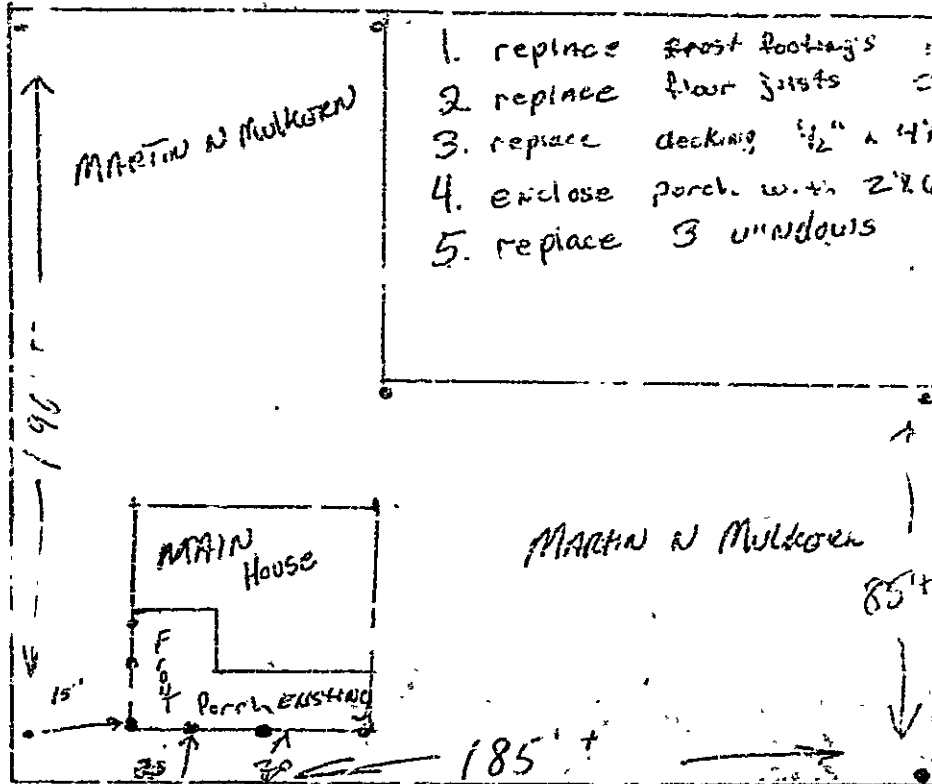 1. replace frost footings =
2. replace floor joists =
3. replace decking 1/2" x 4'x
4. enclose porch with 2"x6
5. replace 3 windows
MARTIN N MULKERN
196'
MAIN
House
MARTIN N MULKERN
85'+
Front Porch EXISTING
15'
185'+